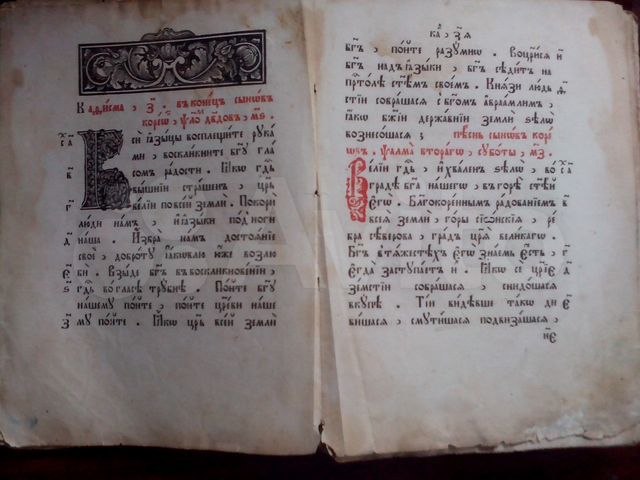 Каѳисма, з҃. въ конецъ сыновъ
корео, ѱло҃ дв҃дов, м҃ѕ.
Вси ꙗзыцы восплещите рука
ми, воскликните бг҃у гла
сом радости. Ꙗкѡ гд҃ь
вышнии страшен, цр҃ь
велии по всей земли. Покори
люди нам, и ꙗзыки под ноги
наша. Избра нам достояние
своѐ, доброту ꙗковлю юже возлю
би. Взыде бг҃ъ в воскликновении,
гд҃ь во гласе трубне. Пойте бг҃у
нашему пойте, пойте цр҃еви наше
му пойте. Ꙗкѡ цр҃ь всей земли
ка, з҃ꙗ
бг҃ъ, пойте разумнѡ. Воцрисѧ
бг҃ъ надъ ꙗзыки, бг҃ъ седит на
пр҃толе ст҃ѣм своем. Кнѧзи людьс
тии собрашасѧ с бг҃омъ авраамлим,
ꙗкѡ бж҃ии державнии земли ѕѣлѡ
вознесошасѧ ; пѣснь сыновъ кор
ѡвъ. ѱалма втораго, субботы, м҃з.
Велии гд҃ь, и хвален ѕѣлѡ, во
граде бг҃а нашегѡ, в горѣ ст҃ѣй
егѡ. Благокоренным радованием
всеѧ земли, горы сиѡнскиѧ, ре
бра северова, град цр҃ѧ великагѡ.
Бг҃ъ в тѧжестехъ егѡ знаем есть,
егда заступает и. Ꙗкѡ се цр҃їе
земстии собрашасѧ, снидошасѧ
вкупѣ. Тии видевше такѡ ди
вишасѧ, смутишасѧ подвизашасѧ,